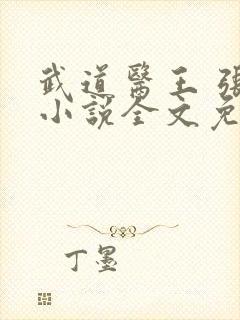 武道醫王 張
小說全文免
丁墨